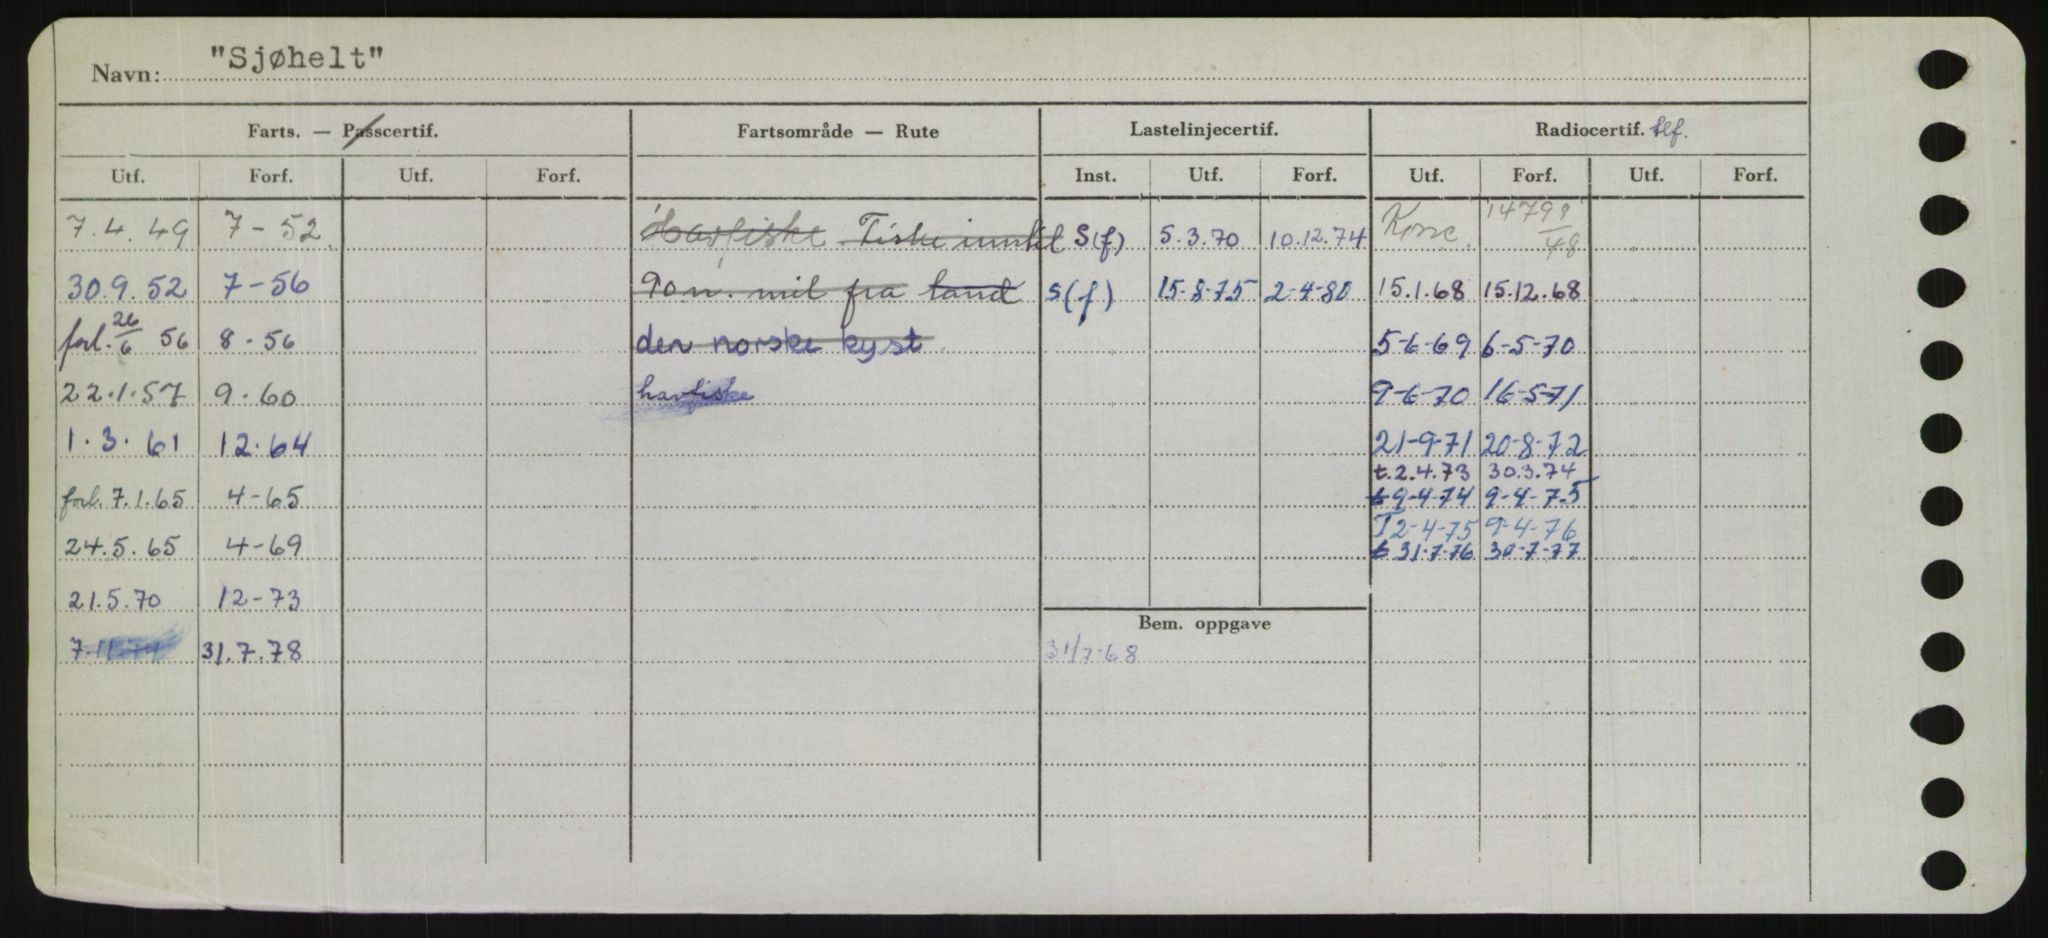 Navn: "Sjøhelt"
Farts. — Passcertif. Fartsområde — Rute Lastelinjecertif. Radiocertif. tlf.
Utf. Forf. Utf. Forf. Inst. Utf. Forf. Utf. Forf. Utf. Forf.
7.4.49 7-52 Havfiske Fiske inntil S(f) 5.3.70 10.12.74 Konv. 14799/48
30.9.52 7-56 90 n. mil fra land S(f) 15-8-75 2-4-80 15.1.68 15.12.68
forl. 26/6 56 8-56 den norske kyst 5-6-69 6-5-70
22.1.57 9-60 havfiske 9-6-70 16-5-71
1.3.61 12.64 21-9-71 20-8-72
t.2.4.73 30.3.74
forl. 7.1.65 4-65 t 9-4-74 9-4-75
T 2-4-75 9-4-76
24.5.65 4-69 t 31.7.76 30-7-77
21.5.70 12-73
Bem. oppgave
7.11.74 31.7.78 31/7-68